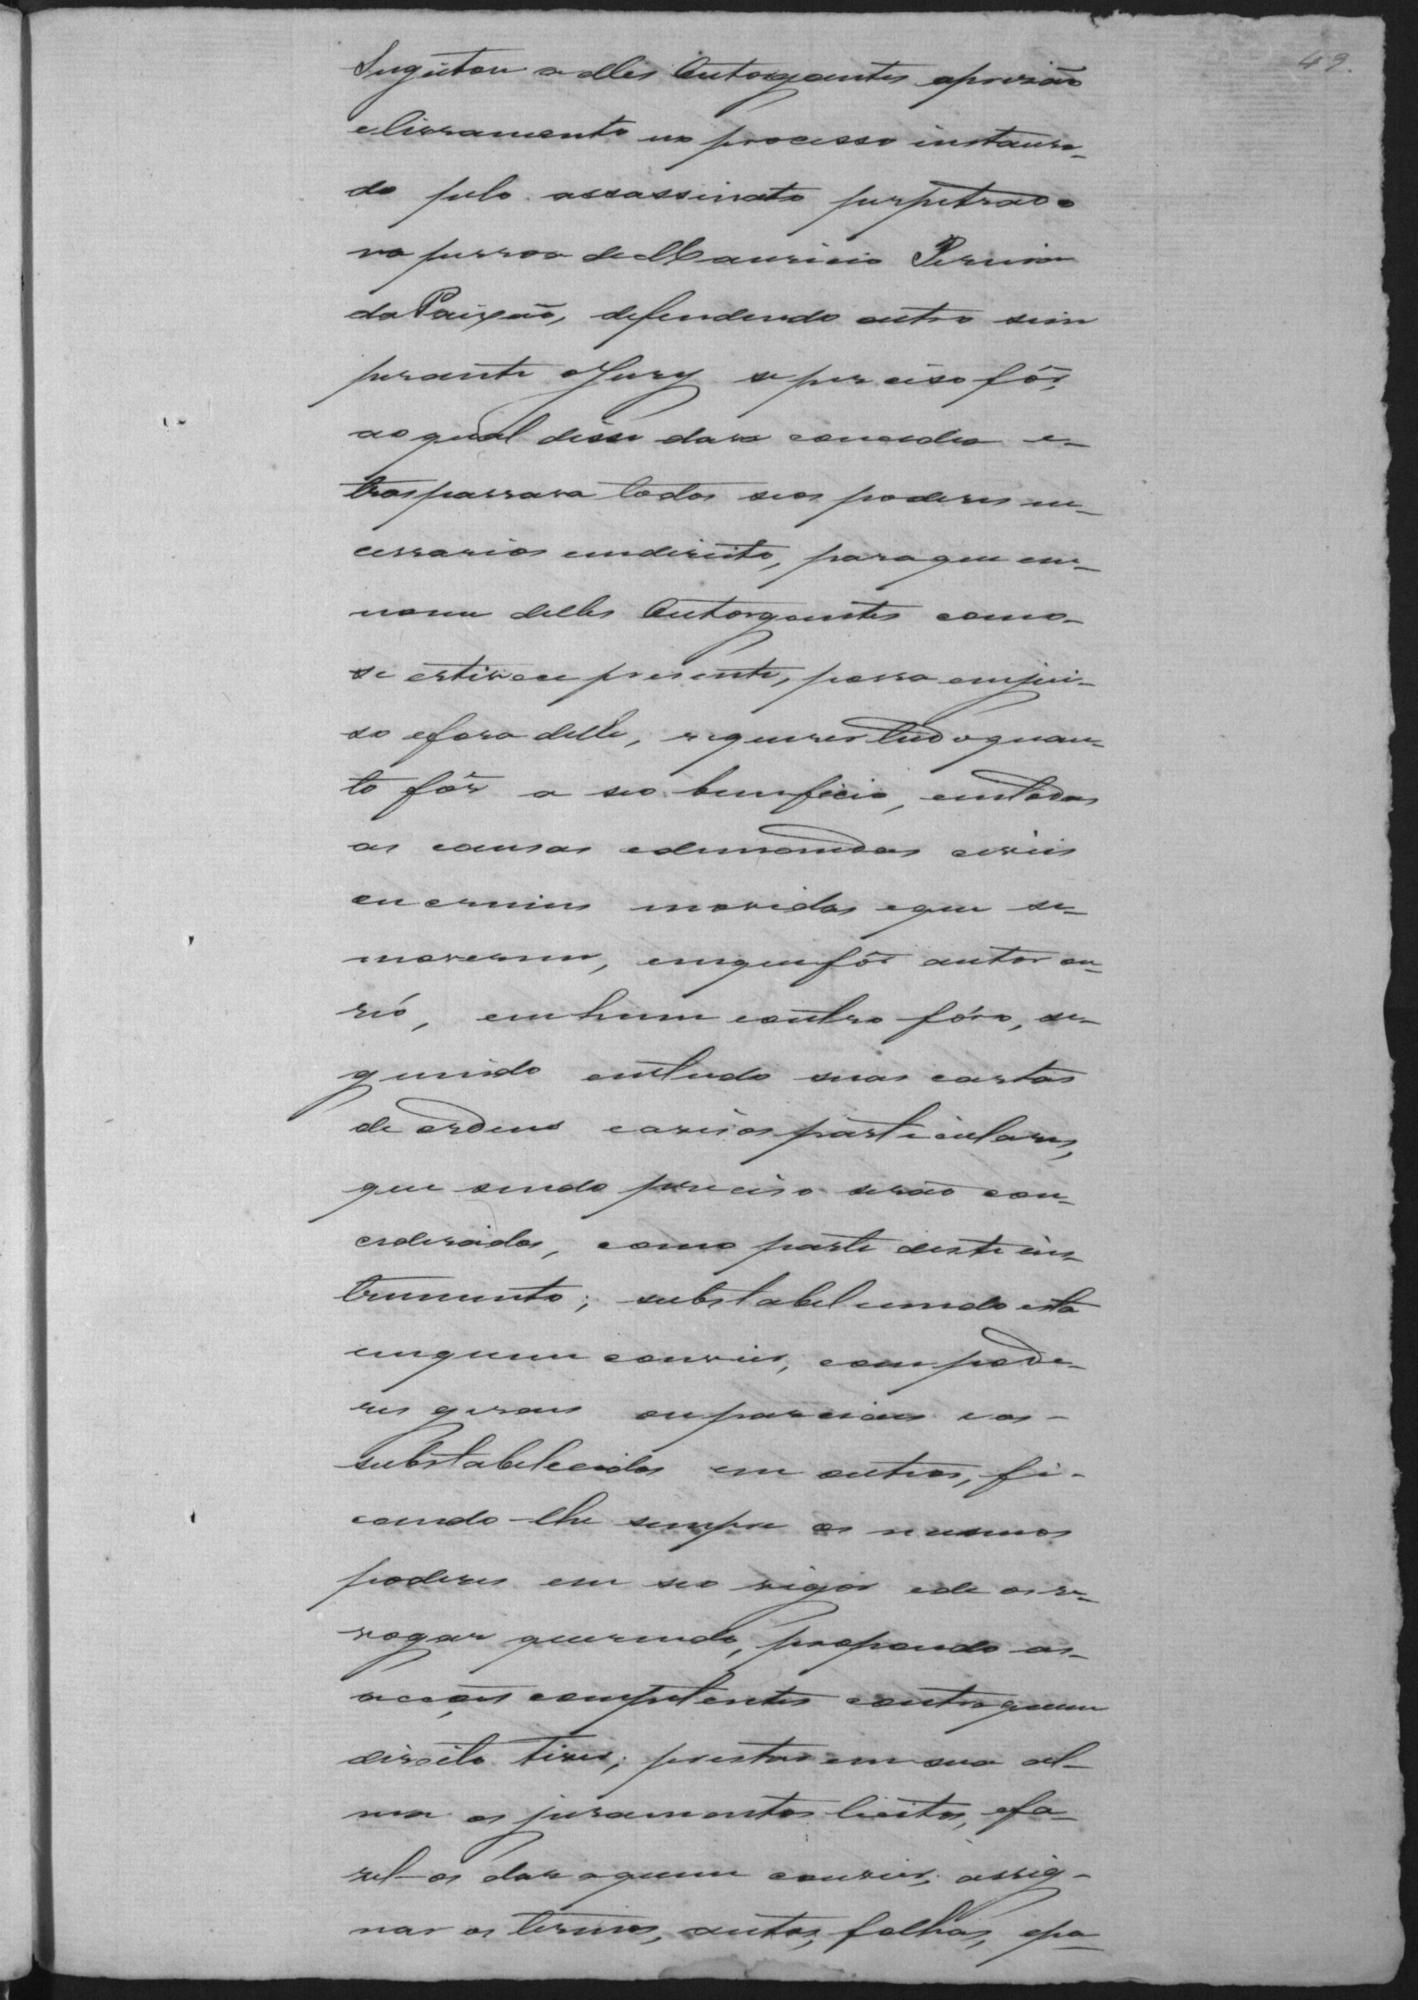 49.
Sugeitou a elles Outorgantes aprisão
e livramento no processo instaura-
do pelo assassinato perpetrado
na pessoa de Mauricio Pereira
da Paixão, defendendo outro sim
perante o Jury se preciso fôr,
ao qual disse dava concedia e-
traspassava todos seos poderes ne-
cessarios emdireito, para que em-
nome delles Outorgantes como-
se estivece presente, possa em jui-
so efora delle, requerer tudo quan-
to fôr a seo beneficio, em todas
as causas e demandas civeis
ou crimes movidas e que se-
moverem, em que fôr autor ou-
réo, em hum e outro fóro, se-
guindo em tudo suas cartas
de ordens e avisos particulares,
que sendo preciso serão con-
ciderados, como parte deste ins-
trumento; substabelecendo esta
em quem convier, com pode-
res geraes ou parciaes e os-
substabelecidos em outros, fi-
cando-lhe sempre os mesmos
poderes em seo vigor e de os re-
vogar querendo, propondo as-
acções competentes contra quem
direito tiver; prestar em sua al-
ma os juramentos licitos, e fa-
sel-os dar a quem convier; assig-
nar os termos, autos, folhas, e pa-